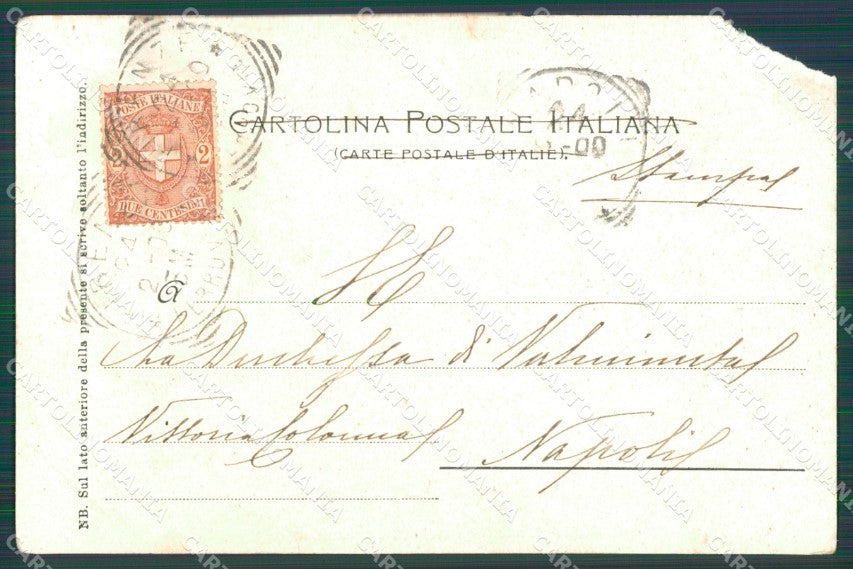 POSTE ITALIANE
2 2
DUE CENTESIMI
CARTOLINA POSTALE ITALIANA
(CARTE POSTALE D'ITALIE).
Stampe
A
La Duchessa di
Vittoria Colonna
Napoli
NB. Sul lato anteriore della presente si scrive soltanto l'indirizzo.
CARTOLINOMANIA